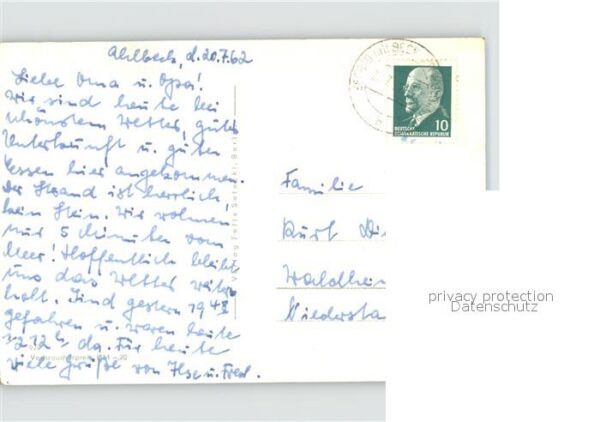 Ahlbeck, d. 20.7.62
Liebe Oma u. Opa!
Wir sind heute bei
schönstem Wetter, guter
Unterkunft u. guten
Essen hier angekommen.
Der Strand ist herrlich
kein Stein. Wir wohnen
nur 5 Minuten vom
Meer! Hoffentlich bleibt
uns das Wetter weiter
hold. Sind gestern 19 48
gefahren u. waren heute
12 h da. Für heute
viele Grüße von Ilse u. Fred.
Verbraucherpreis MDN -.20
Verlag Felix Setecki, Berl
10
DEUTSCHE
DEMOKRATISCHE REPUBLIK
Familie
Kurt Di
Waldhei
Niedersta
privacy protection
Datenschutz